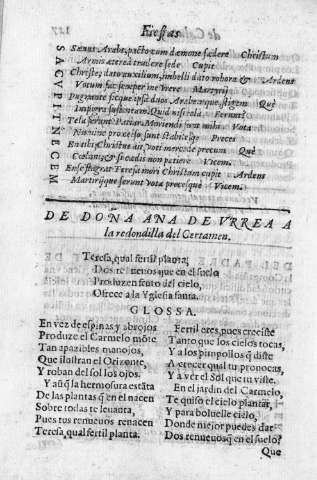 Fiestas
Sæuus Arabs, pacto cum dæmone fœdere Christum
Armis ætereâ trudere sede Cupit
Christe, dato auxilium, imbelli dato robora & Ardens
Votum fac semper ine viere Martyrij
Pugnante sicque ipse duos Arabes sque, stigem Què
Impiger a sustentam. Quid nisi tela Ferunt?
Tela ferunt Patiar. Moriendi sera mihi Vota
Nam nunc pro celso, sunt stabilisq; Preces
En tibi Christus ait, voti mercede precum Què
Cœlum, & si cedis non patiere Vicem.
Ense flagrat Teresa mori Christum cupit Ardens
Martirijque ferunt vota precesque Vicem.
SACVPIT NECEM
DE DONA ANA DE VRREA A
la redondilla del Certamen.
Teresa, qual fertil planta;
Dos renueuos que en el suelo
Produzen fruto del cielo,
Ofrece a la Yglesia santa.
GLOSSA.
En vez de espinas y abrojos
Produze el Carmelo mõte
Tan apazibles manojos,
Que ilustran el Orizonte,
Y roban del sol los ojos.
Y aũq̃ la hermosura es tãta
De las plantas q̃ en el nacen
Sobre todas te leuanta,
Pues tus renueuos renacen
Teresa, qual fertil planta.
Fertil eres, pues creciste
Tanto que los cielos tocas,
Y a los pimpollos q̃ diste
A crecer qual tu prouocas,
Y a ver el Sol que tu viste.
En el jardin del Carmelo,
Te quiso el cielo plantar,
Y para boluelle cielo,
Donde mejor puedes dar
Dos renueuos q̃ en el suelo?
Que